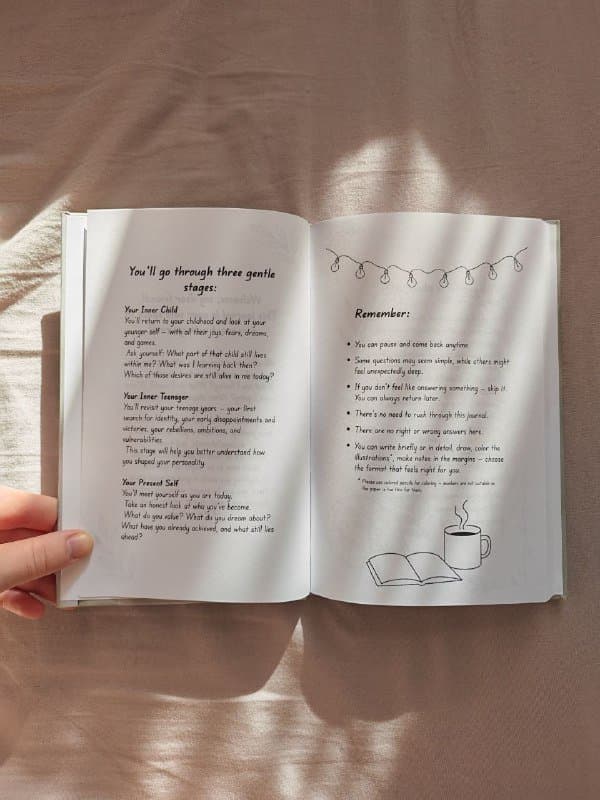 You'll go through three gentle
stages:
Your Inner Child
You'll return to your childhood and look at your
younger self – with all their joys, fears, dreams,
and games.
Ask yourself: What part of that child still lives
within me? What was I learning back then?
Which of those desires are still alive in me today?
Your Inner Teenager
You'll revisit your teenage years – your first
search for identity, your early disappointments and
victories, your rebellions, ambitions, and
vulnerabilities.
This stage will help you better understand how
you shaped your personality.
Your Present Self
You'll meet yourself as you are today.
Take an honest look at who you've become.
What do you value? What do you dream about?
What have you already achieved, and what still lies
ahead?
Remember:
• You can pause and come back anytime.
• Some questions may seem simple, while others might
feel unexpectedly deep.
• If you don't feel like answering something – skip it.
You can always return later.
• There's no need to rush through this journal.
• There are no right or wrong answers here.
• You can write briefly or in detail, draw, color the
illustrations*, make notes in the margins – choose
the format that feels right for you.
* Please use colored pencils for coloring – markers are not suitable as
the paper is too thin for them.